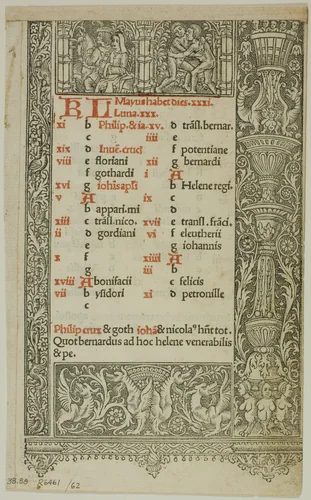 KL Mayus habet dies .xxxi.
Luna .xxx.
xi b Philip. & ia.
c
xix d Inuē. cruci
viii e floriani
f gothardi
xvi g iohīs apli
v A
b appari. mi
xiii c trāſl. nico.
ii d gordiani
e
x f
g
xviii A bonifacii
vii b yſidori
c
xv. d trāſl. bernar.
e
f potentiane
xii g bernardi
i A
b Helene regi.
ix c
d
xvii e tranſl. frāci.
vi f eleutherii
g iohannis
xiiii A
iii b
c felicis
xi d petronille
Philip crux & goth iohā & nicolaꝰ hn̄t tot.
Quot bernardus ad hoc helene venerabilis
& pe.
38.89 R6461 /62